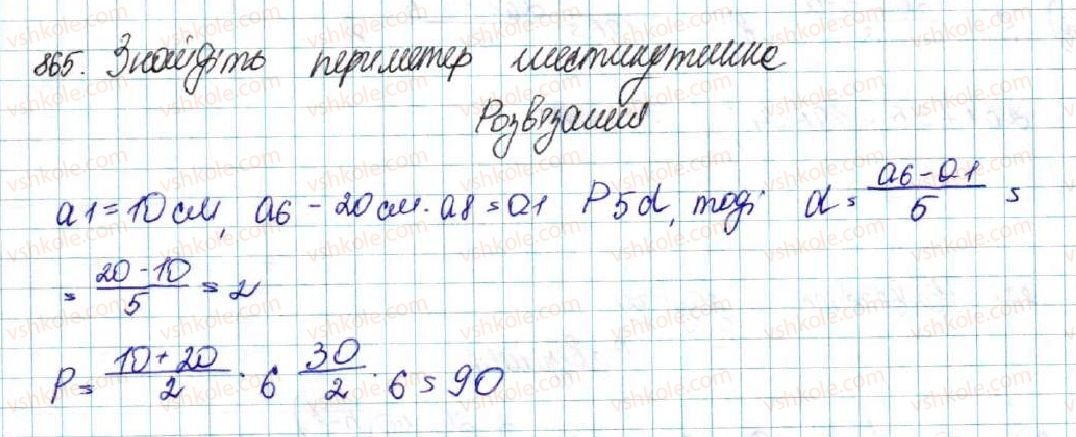 865. Знайдіть периметер шестикутника
Розв'язання
a1 = 10 см, a6 - 20 см. a8 = a1 P 5d, тоді d = \frac{a6 - a1}{5} =
= \frac{20 - 10}{5} = 2
P = \frac{10 + 20}{2} \cdot 6 \frac{30}{2} \cdot 6 = 90